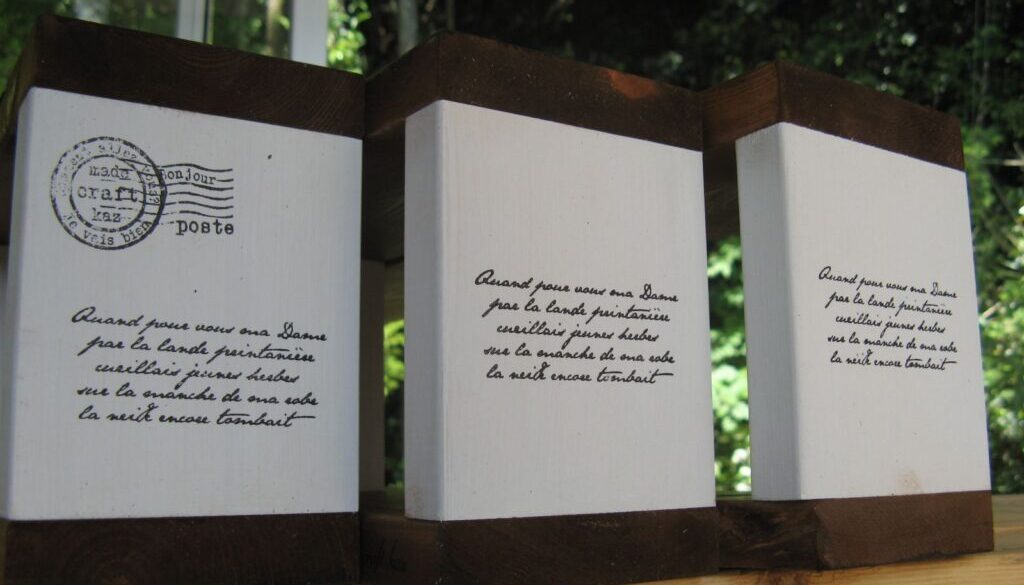 Comment allez vous?
made
craft
kaz
Je vais bien
Bonjour
poste
Quand pour vous ma Dame
par la lande printanière
cueillais jeunes herbes
sur la manche de ma robe
la neige encore tombait
Quand pour vous ma Dame
par la lande printanière
cueillais jeunes herbes
sur la manche de ma robe
la neige encore tombait
Quand pour vous ma Dame
par la lande printanière
cueillais jeunes herbes
sur la manche de ma robe
la neige encore tombait